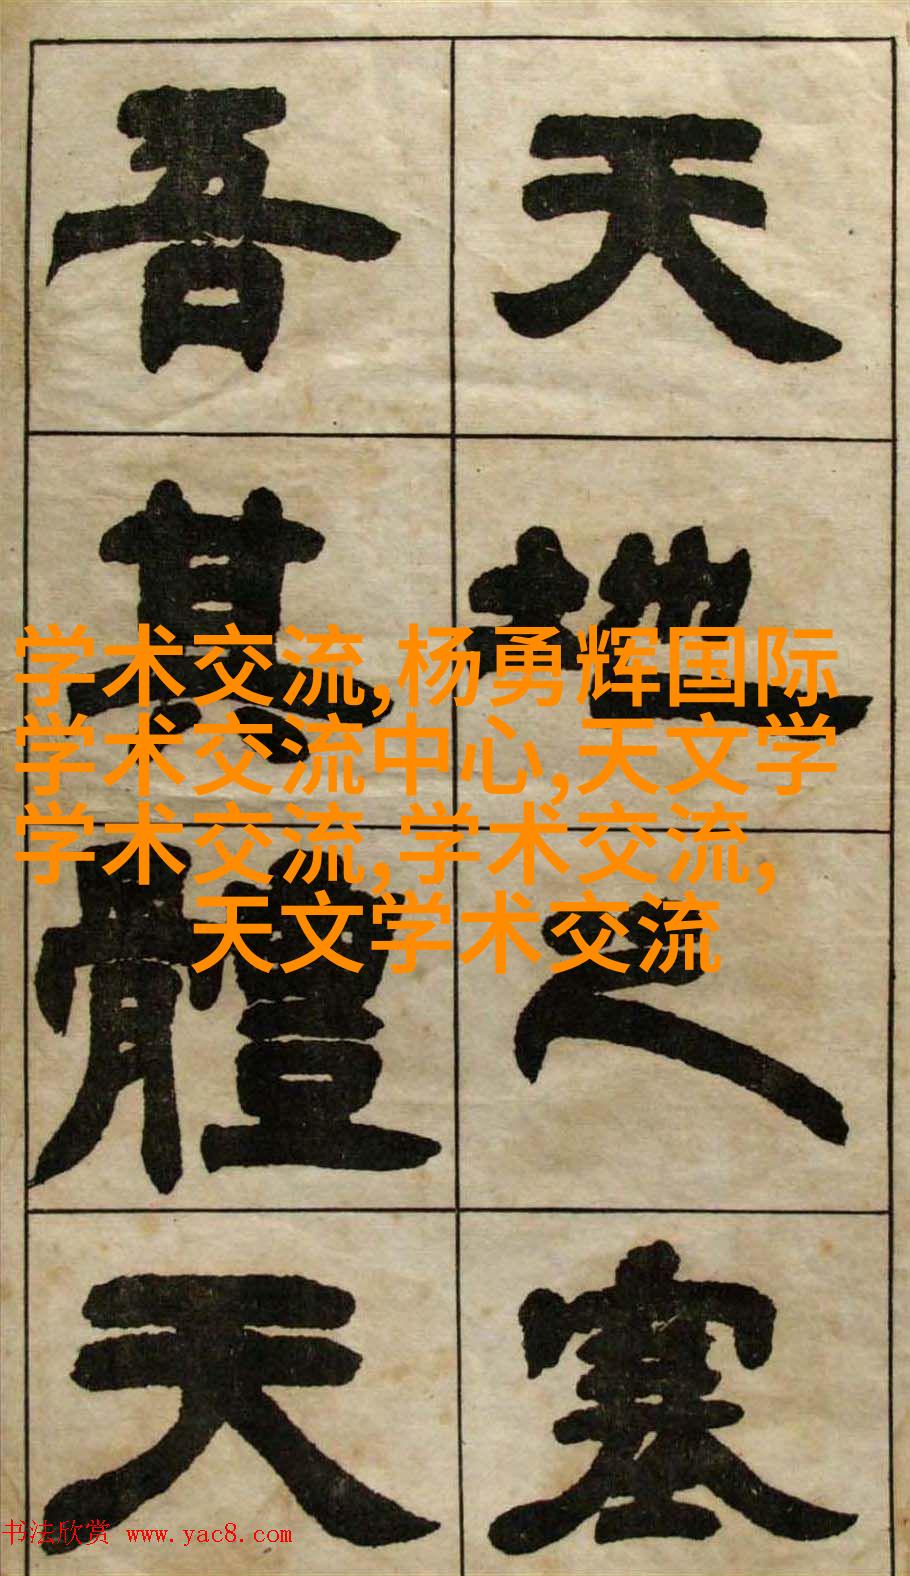 天地之塞
吾其體天
学术交流,杨勇辉国际
学术交流中心,天文学
学术交流,学术交流,
天文学术交流
书法欣赏 www.yac8.com